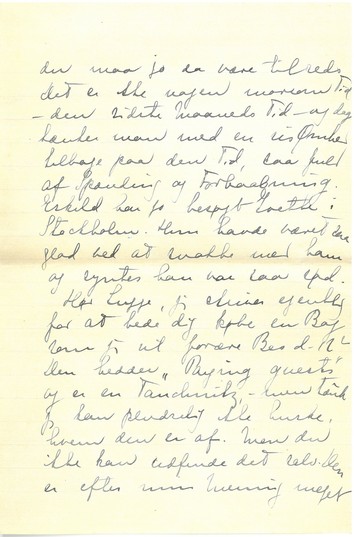 du maa jo da være tilreds
det er ikke nogen morsom Tid
– den sidste Maaneds Tid – og dog
tænker man med en vis Ømhed
tilbage paa den Tid, saa fuld
af Spænding og Forhaabning.
Eskild har jo besøgt Grethe i
Stockholm. Hun havde været saa
glad ved at snakke med ham
og syntes han var saa sød.
Hør Lugge, jeg skriver egentlig
for at bede dig købe en Bog
som jeg vil forære Bes d. 12
Den hedder „Paying guests"
og er en Tauchnitz, – men tænk
jeg kan pludselig ikke huske,
hvem den er af. Men du
ikke kan udfinde det selv. Den
er efter min Mening meget